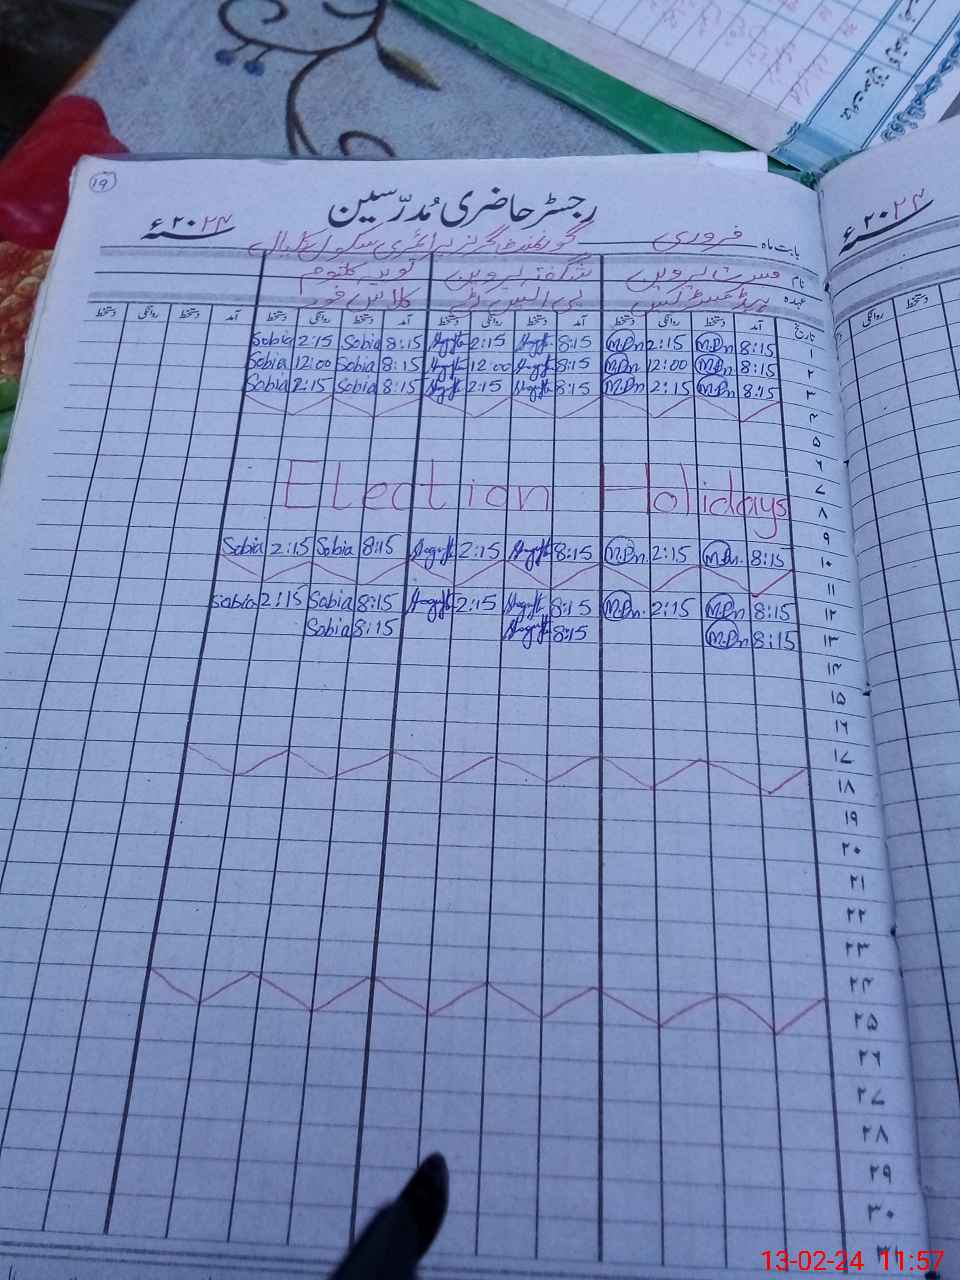 ۱۹
رجسٹر حاضری مُدرّسین
بابت ماہ فروری گورنمنٹ گرلز پرائمری سکول ۲۰۲۴ء
۲۰۲۴ء
نام مسرت پروین شگفتہ پروین ثوبیہ کلثوم
عہدہ ہیڈ مسٹریس پی ایس ٹی کلاس فور
تاریخ آمد دستخط روانگی دستخط آمد دستخط روانگی دستخط آمد دستخط روانگی دستخط آمد دستخط روانگی دستخط
روانگی دستخط
۱ 8:15 M.Pn 2:15 M.Pn 8:15 2:15 8:15 Sobia 2:15 Sobia
۲ 8:15 M.Pn 12:00 M.Pn 8:15 12:00 8:15 Sobia 12:00 Sobia
۳ 8:15 M.Pn 2:15 M.Pn 8:15 2:15 8:15 Sobia 2:15 Sobia
۴
۵
۶
۷ Election Holidays
۸
۹
۱۰ 8:15 M.Pn. 2:15 M.Pn. 8:15 2:15 8:15 Sobia 2:15 Sobia
۱۱
۱۲ 8:15 M.Pn 2:15 M.Pn. 8:15 2:15 8:15 Sobia 2:15 Sobia
۱۳ 8:15 M.Pn 8:15 8:15 Sobia
۱۴
۱۵
۱۶
۱۷
۱۸
۱۹
۲۰
۲۱
۲۲
۲۳
۲۴
۲۵
۲۶
۲۷
۲۸
۲۹
۳۰
13-02-24 11:57